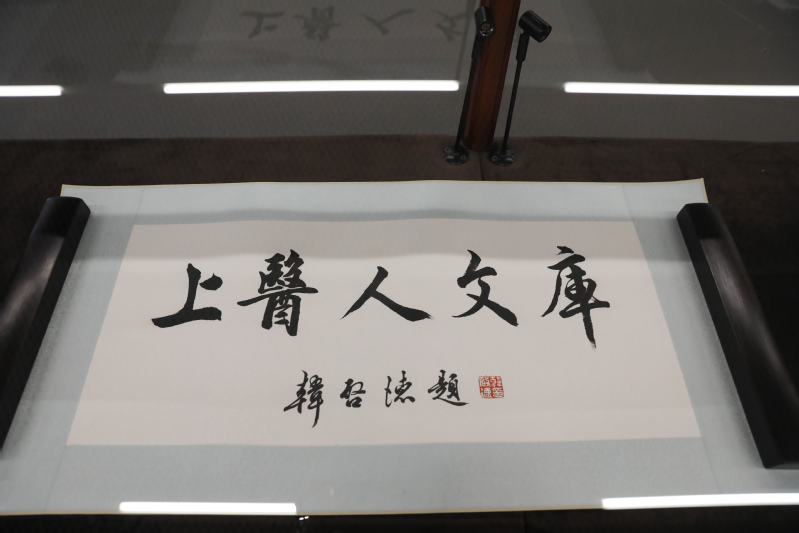 上醫人文庫
韓啓德題